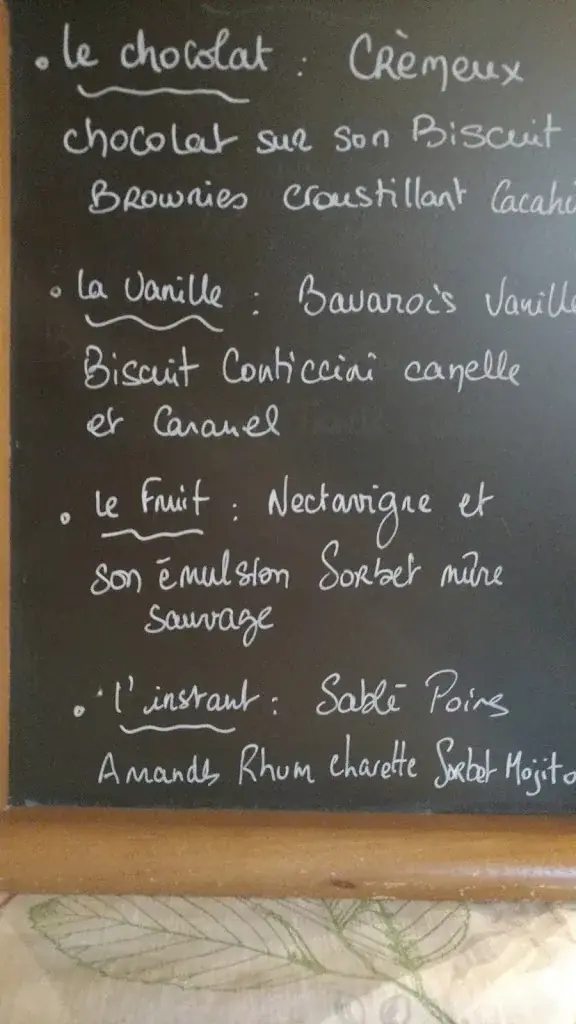 • Le chocolat : Crèmeux
chocolat sur son Biscuit
Brownies croustillant Cacahu
• La Vanille : Bavarois Vanille
Biscuit Conticcini canelle
et Caramel
• Le Fruit : Nectavigne et
son émulsion Sorbet mûre
sauvage
• L'instant : Sablé Poires
Amandes Rhum charette Sorbet Mojito